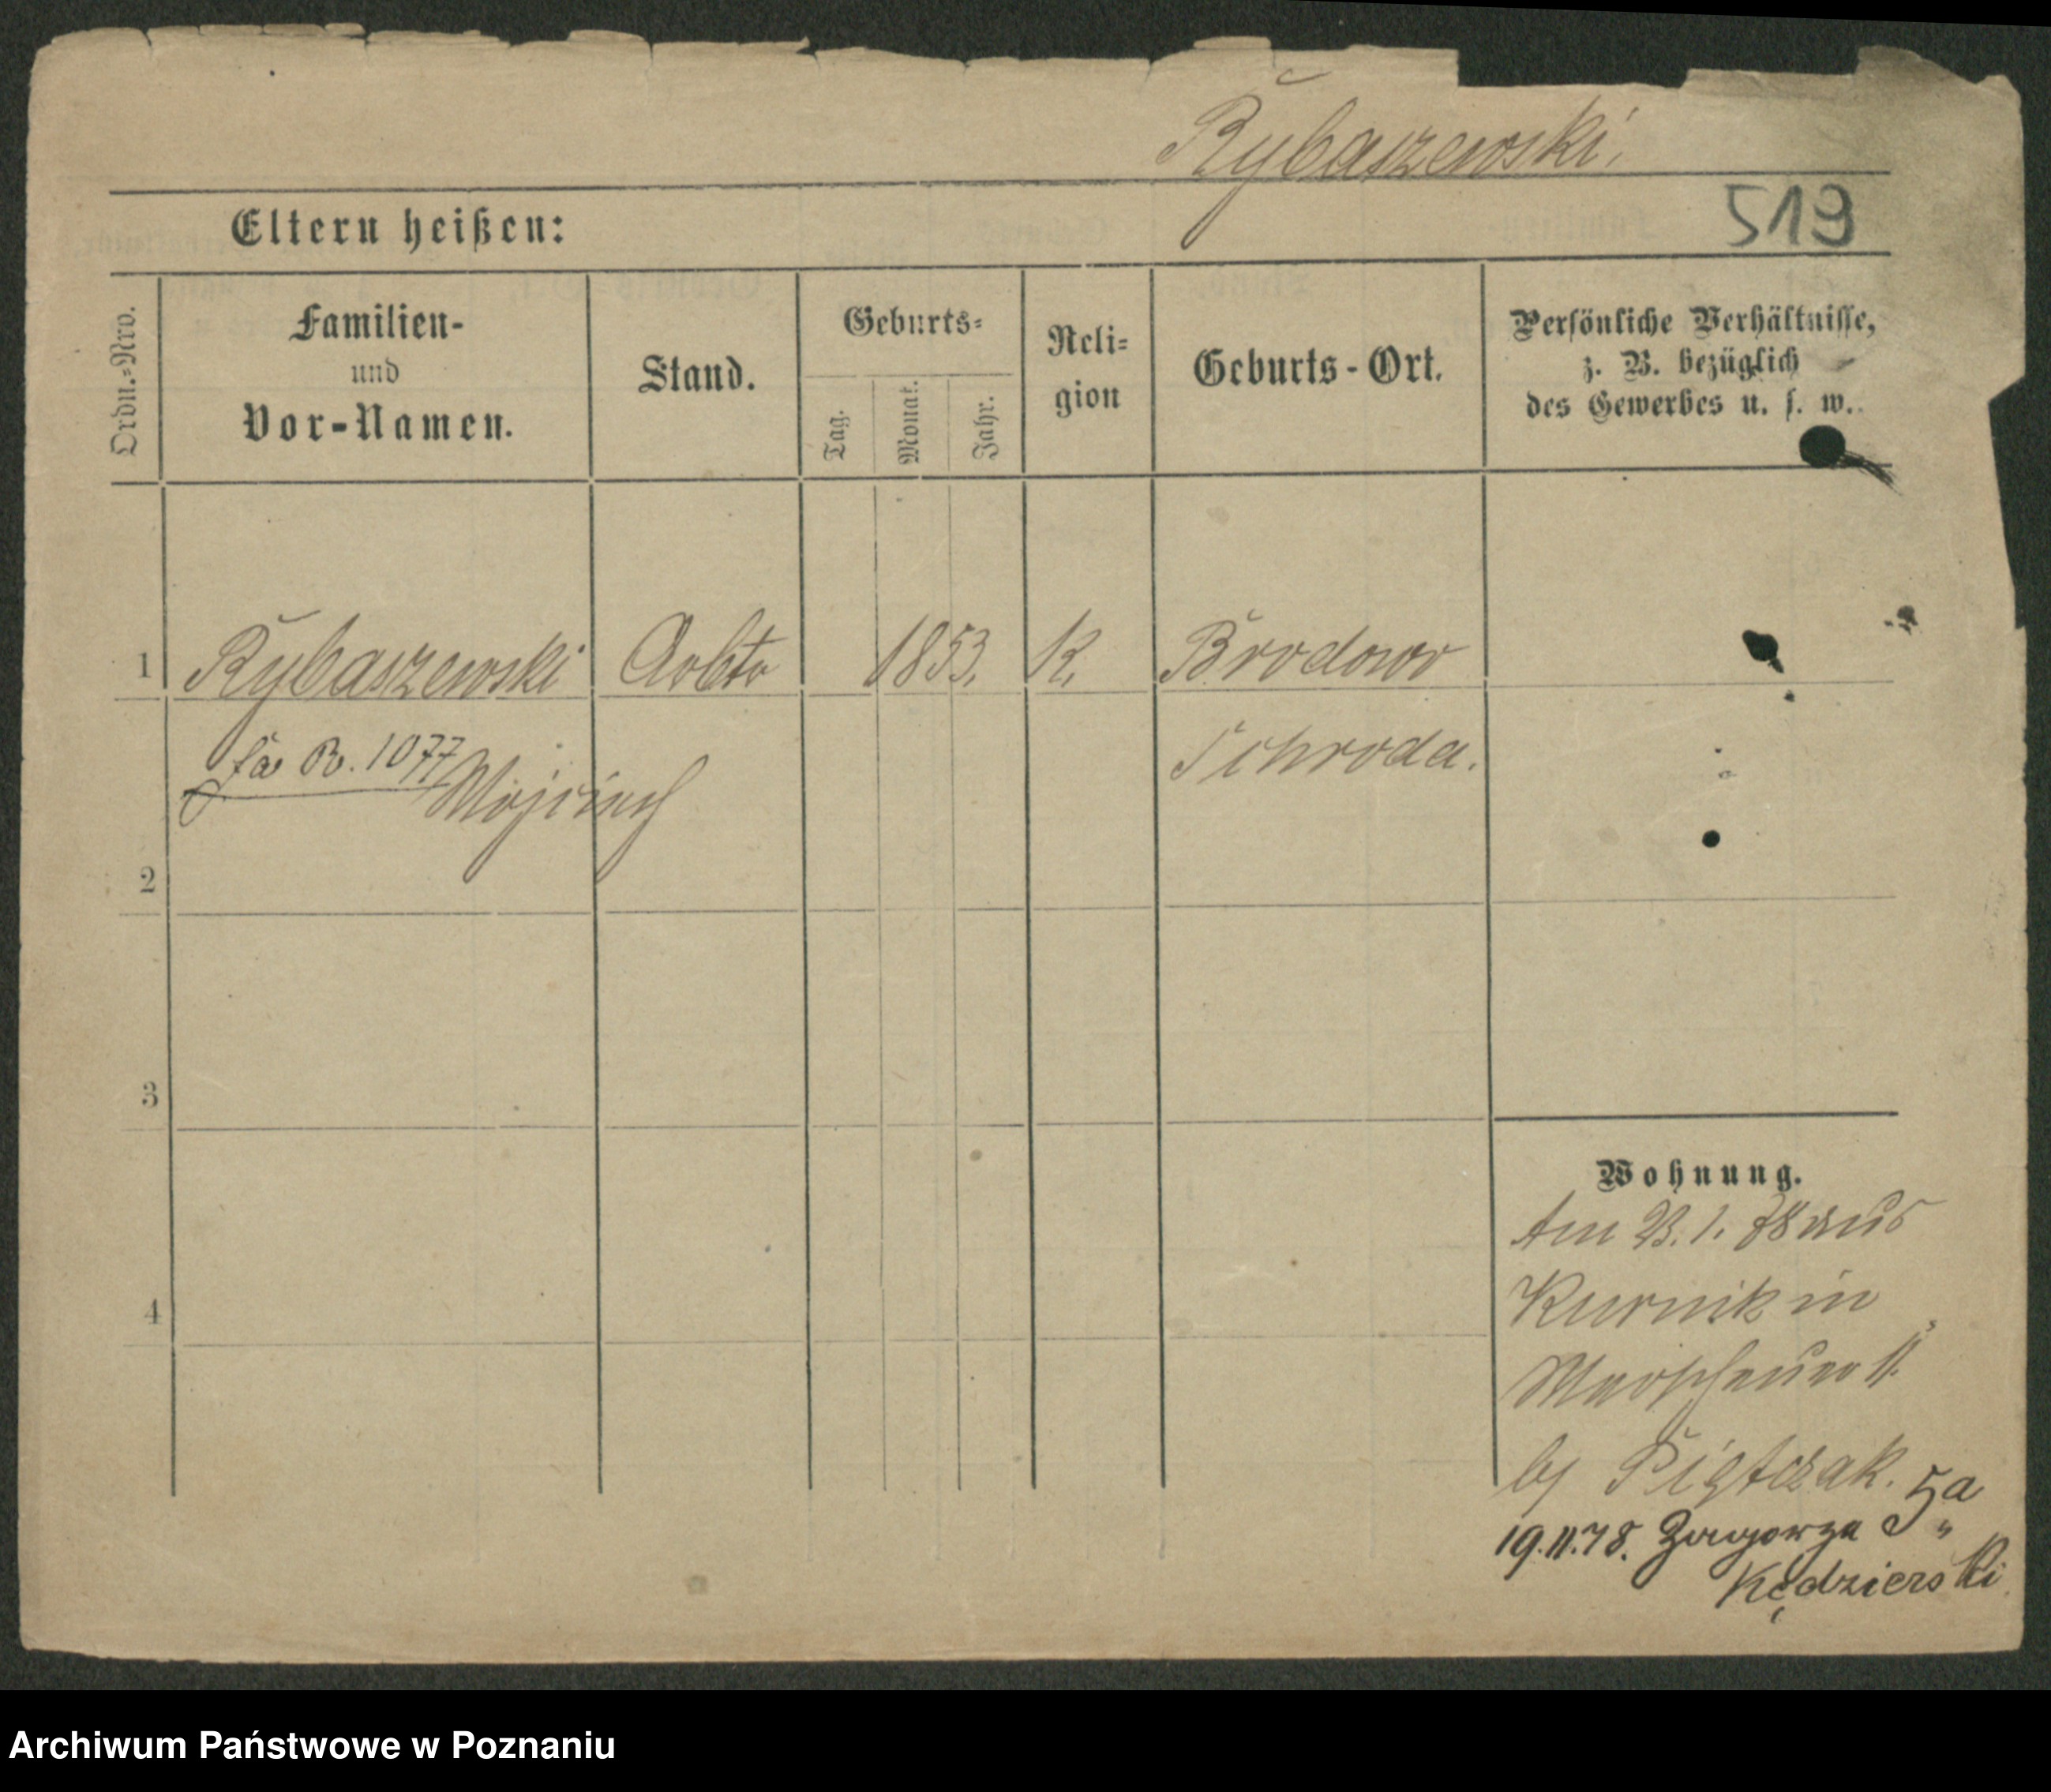 Rybaszewski.
519
Eltern heißen:
Ordn.-Nro.
Familien-
und
Vor-Namen.
Stand.
Geburts-
Tag.
Monat.
Jahr.
Reli-
gion
Geburts-Ort.
Persönliche Verhältnisse,
z. B. bezüglich
des Gewerbes u. s. w.
1 Rybaszewski Arbtr 1853. K. Brodowo
R. 1077 Schroda.
2
3
4
Wohnung.
Am 23. 1. 78 aus
Kurnik in
11.
by Piętczak.
19.11.78. Zagorze 5a
Kędzierski
Archiwum Państwowe w Poznaniu